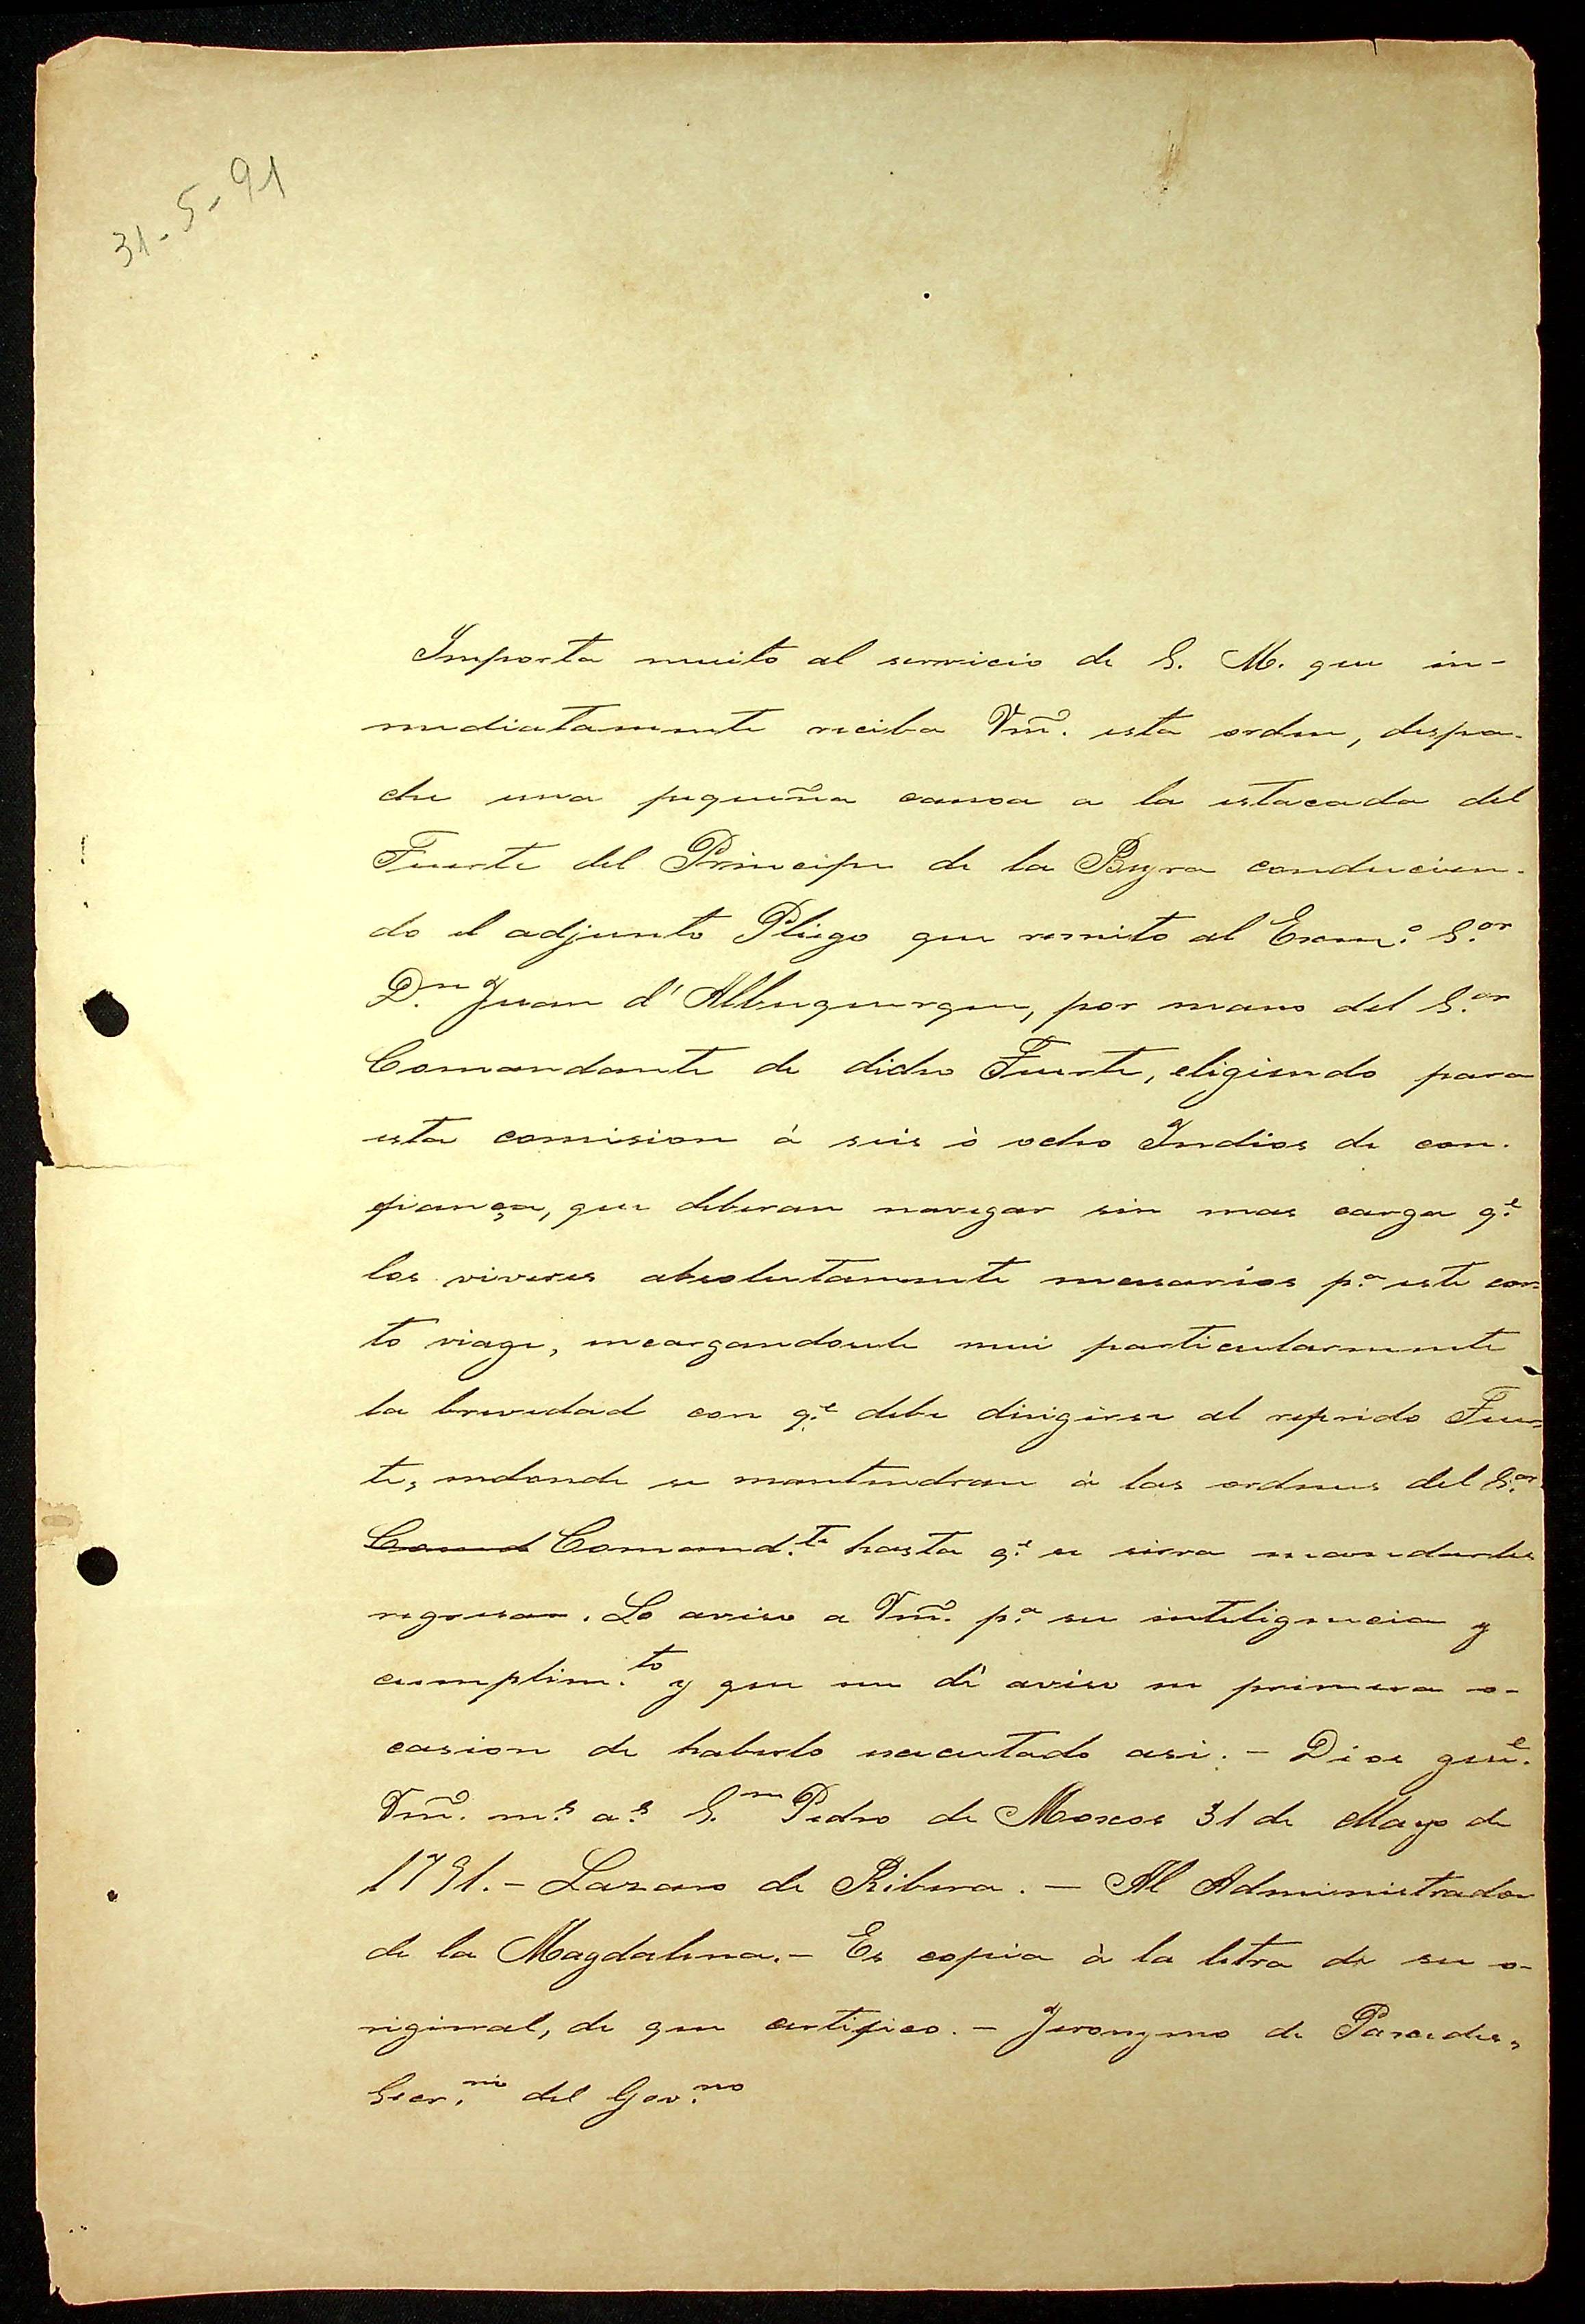 31-5-91
Importa muito al servicio de S. M. que in-
mediatamente reciba Vm̃d. esta orden, despa-
che una pequeña canoa a la estacada del
Fuerte del Principe de la Beyra conducien-
do el adjunto Pliego que remito al Exmº. S.or
D.n Juan d'Albuquerque, por mano del S.or
Comandante de dicho Fuerte, eligiendo para
esta comision à seis ò ocho Indios de con-
fiança, que deberan navegar sin mas carga q.e
los viveres absolutamente necesarios p.a este cor-
to viage, encargandosele mui particularmente
la brevedad con q.e debe dirigirse al referido Fuer-
te, endonde se mantendran à las ordenes del S.or
Comand Comand.te hasta q.e se sirva mandarles
regresar. Lo aviso a Vm̃d. p.a su inteligencia y
cumplim.to y que me dè aviso en primera o-
casion de haberlo executado asi. - Dios gue.
Vm̃d. m.s a.s S.n Pedro de Moxos 31 de Mayo de
1791. - Lazaro de Ribera. - Al Administrador
de la Magdalena. - Es copia à la letra de su o-
riginal, de que certifico. - Jeronymo de Paredes,
Secr.rio del Gov.no